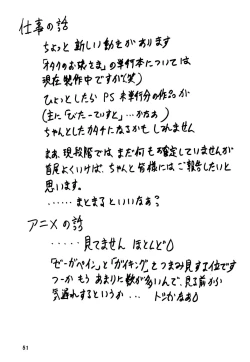 仕事の話
ちょっと新しい動きがあります
「オタクのお嬢さま」の単行本については
現在製作中ですが(笑)
ひょっとしたら PS 未単行分の作品が
(主に「ぴたーていすと」…かなぁ)
ちゃんとしたカタチになるかもしれません
まぁ、現段階ではまだ何も確定していませんが
首尾よくいけば、ちゃんと皆様にはご報告したいと
思います。
……まとまるといいなぁ?
アニメの話
・・・・・見てません ほとんど
「ゼーガペイン」と「ガイキング」をつまみ見する位です
つーか もう あまりに数が多いんで、見る前から
気遅れするというか … トシかなぁ
51